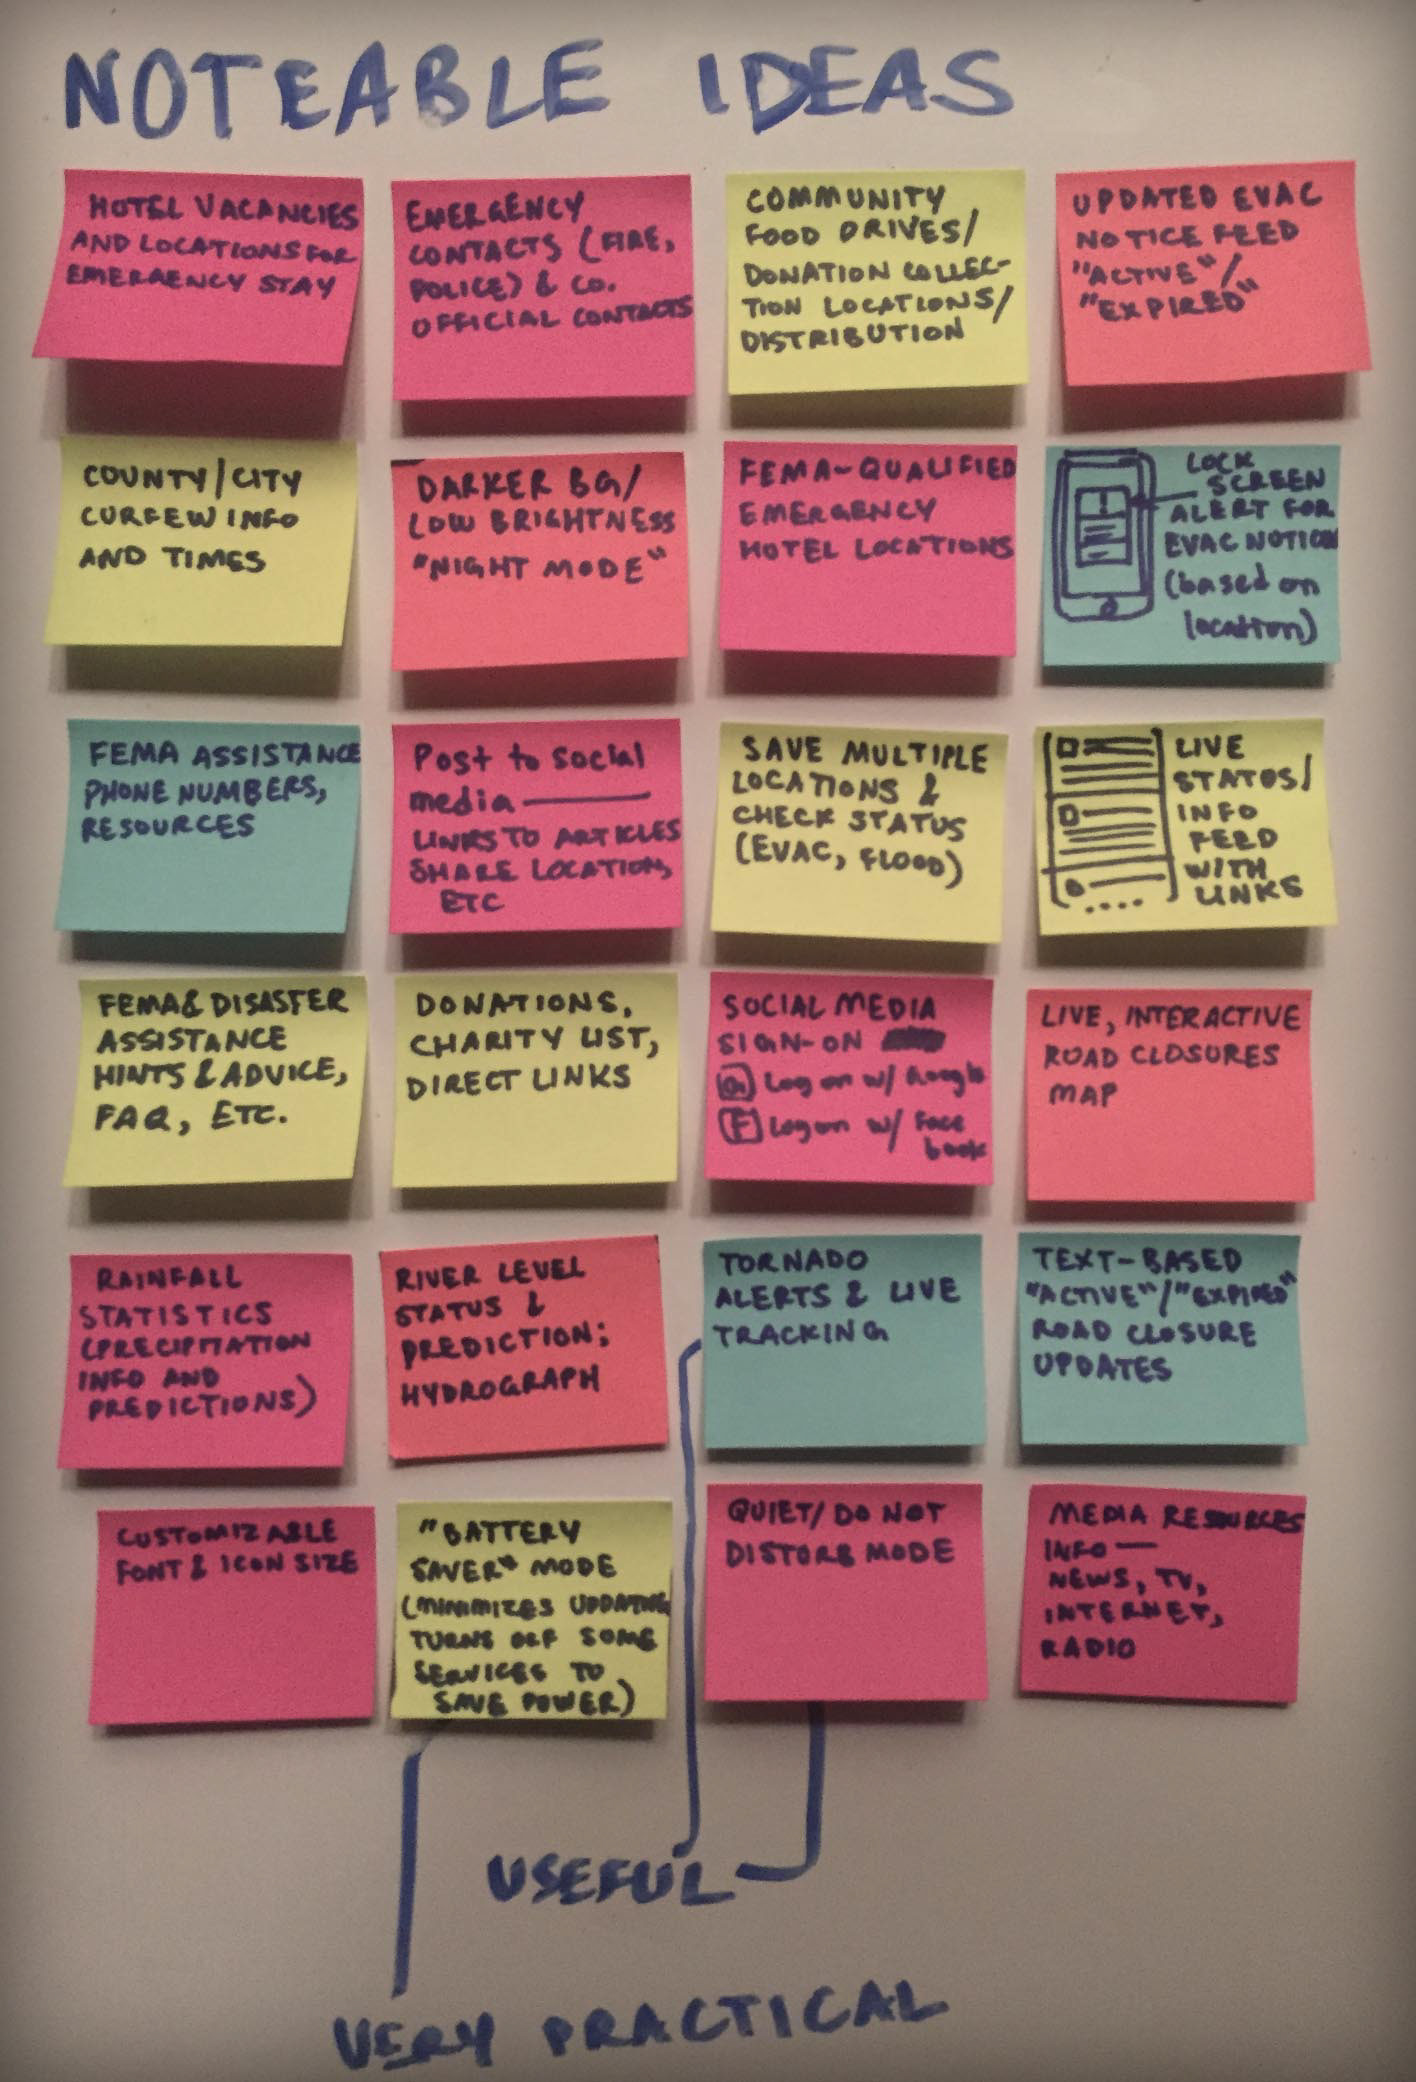 NOTEABLE IDEAS
HOTEL VACANCIES
AND LOCATIONS FOR
EMERGENCY STAY
EMERGENCY
CONTACTS (FIRE,
POLICE) & CO.
OFFICIAL CONTACTS
COMMUNITY
FOOD DRIVES/
DONATION COLLEC-
TION LOCATIONS/
DISTRIBUTION
UPDATED EVAC
NOTICE FEED
"ACTIVE"/
"EXPIRED"
COUNTY/CITY
CURFEW INFO
AND TIMES
DARKER BG/
LOW BRIGHTNESS
"NIGHT MODE"
FEMA-QUALIFIED
EMERGENCY
HOTEL LOCATIONS
LOCK
SCREEN
ALERT FOR
EVAC NOTICE
(based on
location)
FEMA ASSISTANCE
PHONE NUMBERS,
RESOURCES
Post to social
media —
LINKS TO ARTICLES
SHARE LOCATION,
ETC
SAVE MULTIPLE
LOCATIONS &
CHECK STATUS
(EVAC, FLOOD)
LIVE
STATUS/
INFO
FEED
WITH
LINKS
FEMA & DISASTER
ASSISTANCE
HINTS & ADVICE,
FAQ, ETC.
DONATIONS,
CHARITY LIST,
DIRECT LINKS
SOCIAL MEDIA
SIGN-ON
G Log on w/ Google
F Log on w/ Face
book
LIVE, INTERACTIVE
ROAD CLOSURES
MAP
RAINFALL
STATISTICS
(PRECIPITATION
INFO AND
PREDICTIONS)
RIVER LEVEL
STATUS &
PREDICTION;
HYDROGRAPH
TORNADO
ALERTS & LIVE
TRACKING
TEXT-BASED
"ACTIVE"/"EXPIRED"
ROAD CLOSURE
UPDATES
CUSTOMIZABLE
FONT & ICON SIZE
"BATTERY
SAVER" MODE
(MINIMIZES UPDATING
TURNS OFF SOME
SERVICES TO
SAVE POWER)
QUIET/DO NOT
DISTURB MODE
MEDIA RESOURCES
INFO —
NEWS, TV,
INTERNET,
RADIO
USEFUL
VERY PRACTICAL